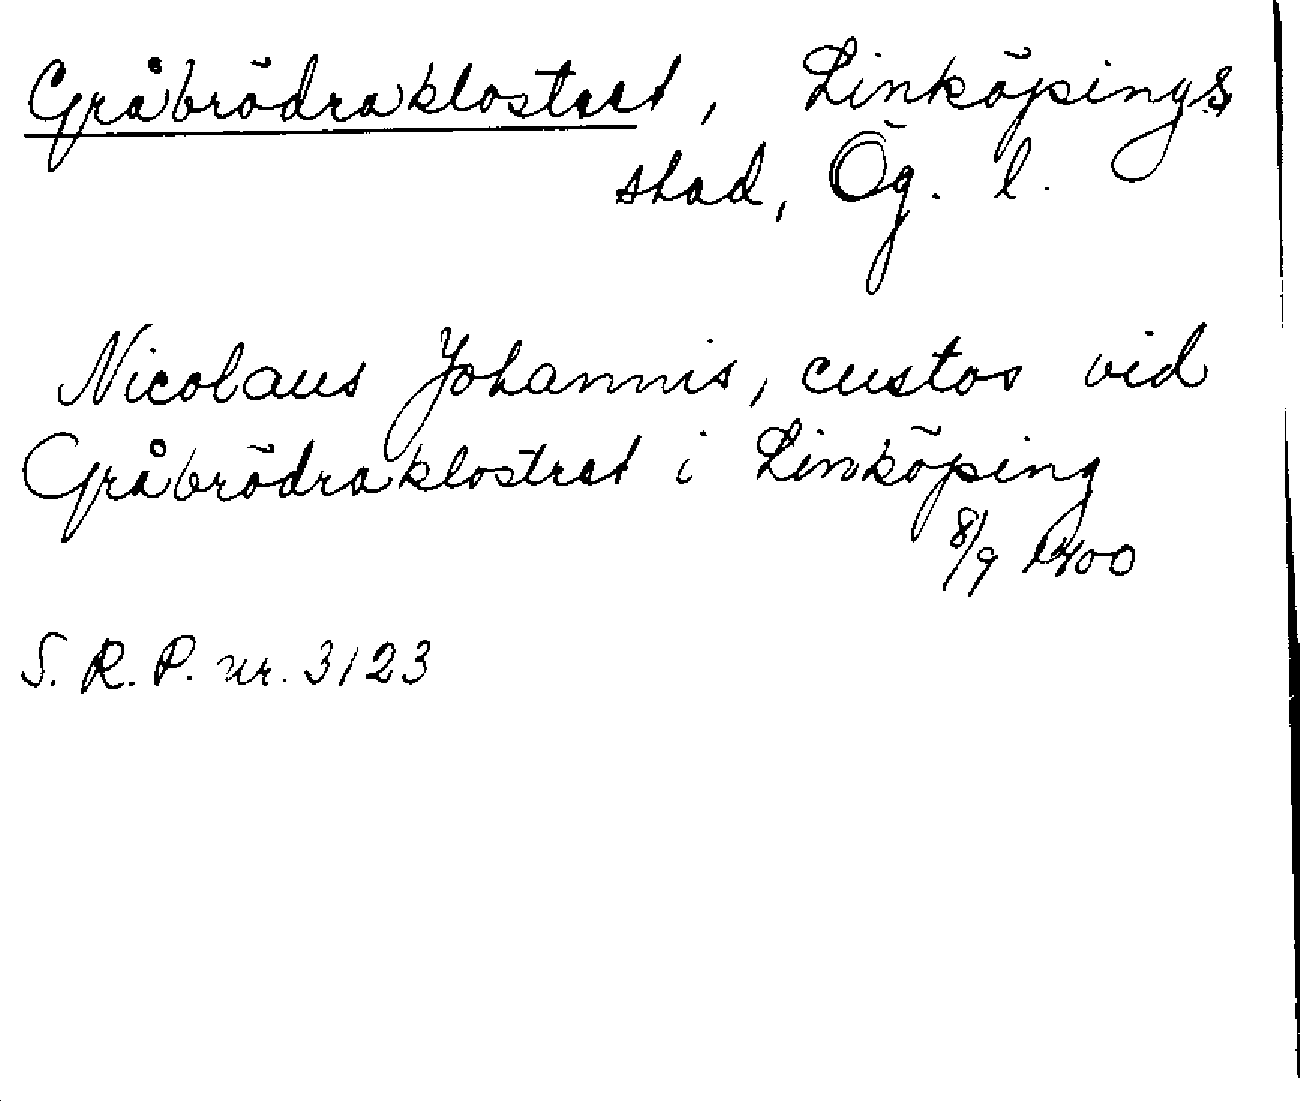 Gråbrödraklostret, Linköpings
stad, Ög. l.
Nicolaus Johannis, custos vid
Gråbrödraklostret i Linköping
8/9 1400
S. R. P. nr. 3123